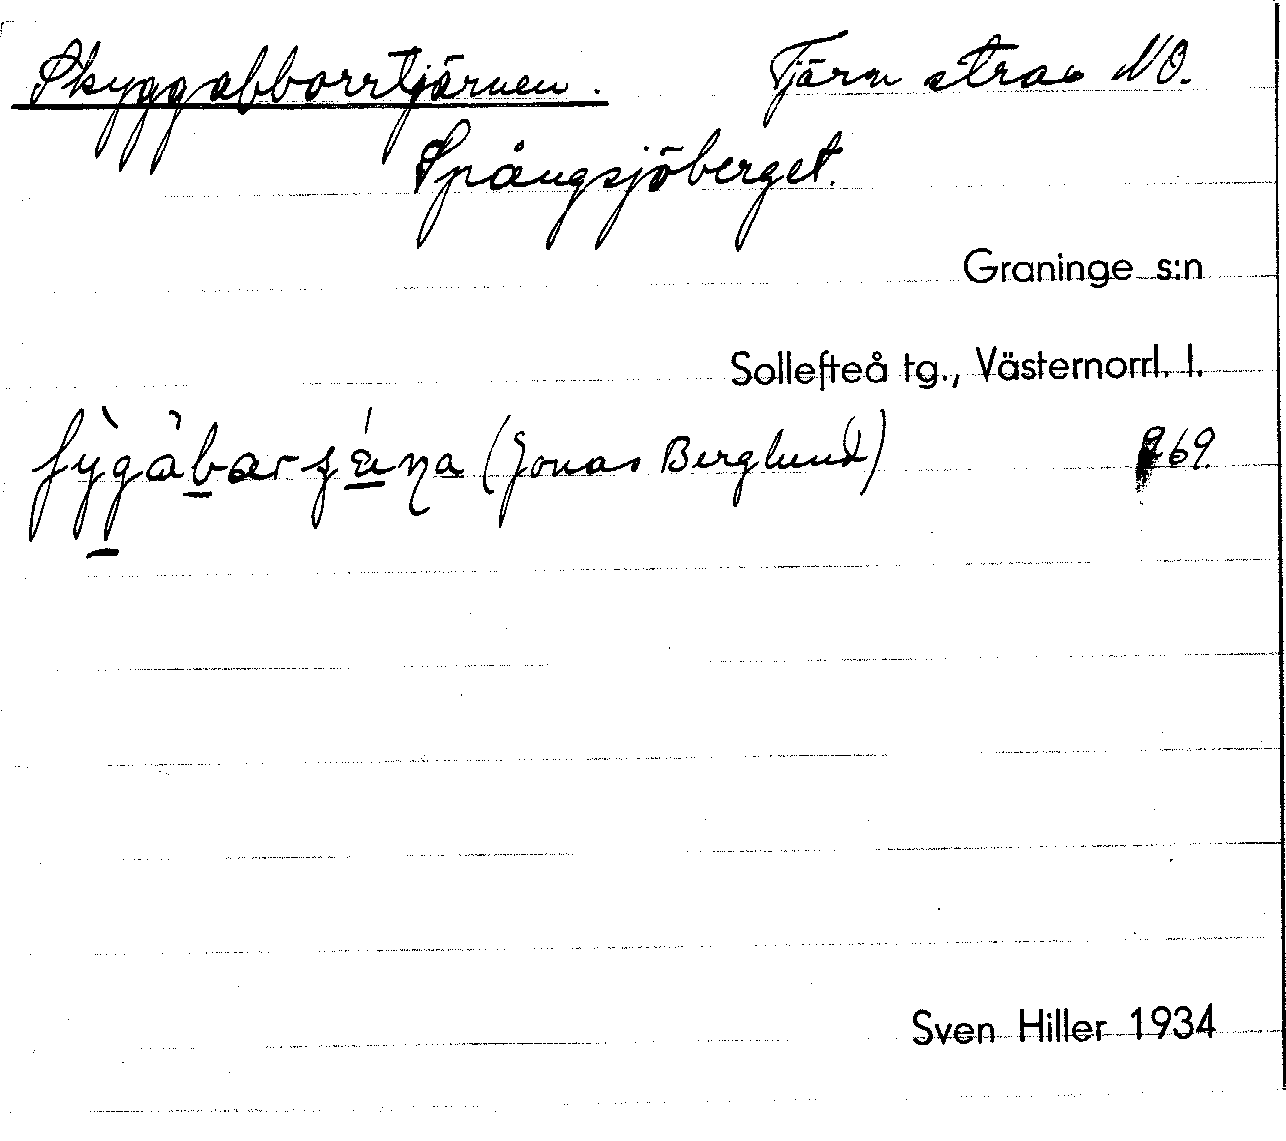 Skyggabborrtjärnen. Tjärn strax NO.
Spångsjöberget.
Graninge s:n
Sollefteå tg., Västernorrl. l.
(Jonas Berglund) 269.
Sven Hiller 1934